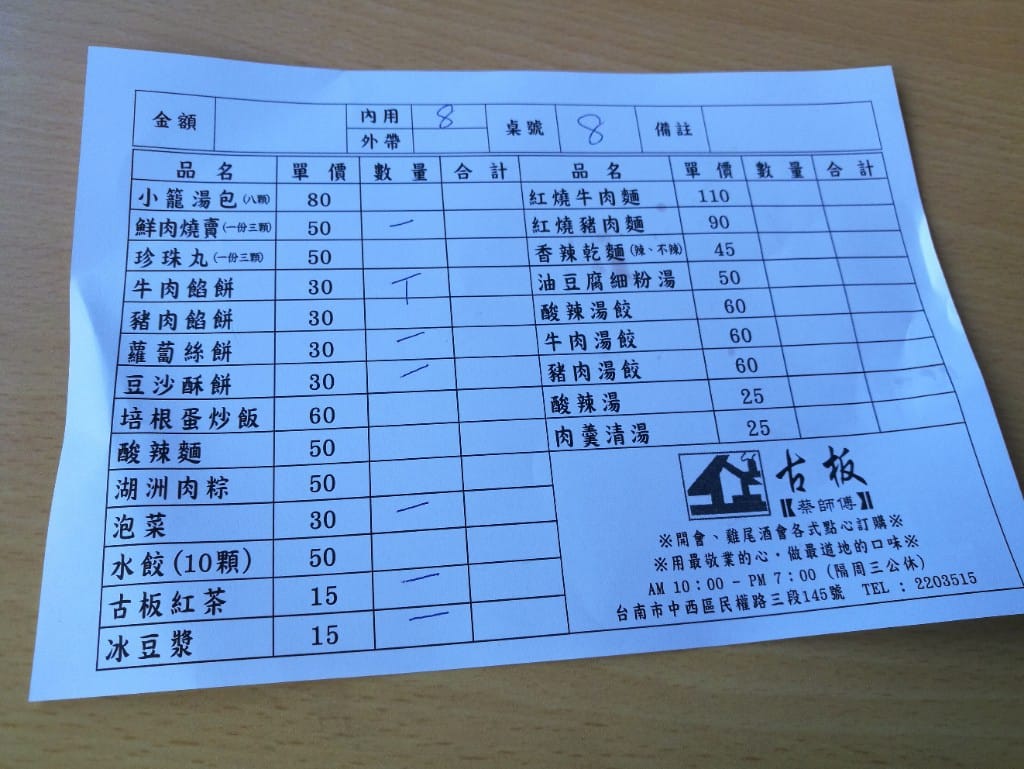 金額 內用 8 桌號 8 備註
外帶
品名 單價 數量 合計 品名 單價 數量 合計
小籠湯包(八顆) 80 紅燒牛肉麵 110
鮮肉燒賣(一份三顆) 50 一 紅燒豬肉麵 90
珍珠丸(一份三顆) 50 香辣乾麵(辣、不辣) 45
牛肉餡餅 30 丅 油豆腐細粉湯 50
豬肉餡餅 30 酸辣湯餃 60
蘿蔔絲餅 30 一 牛肉湯餃 60
豆沙酥餅 30 一 豬肉湯餃 60
培根蛋炒飯 60 酸辣湯 25
酸辣麵 50 肉羹清湯 25
湖洲肉粽 50
泡菜 30 一
水餃(10顆) 50
古板紅茶 15 一
冰豆漿 15 一
古板
【蔡師傅】
※開會、雞尾酒會各式點心訂購※
※用最敬業的心，做最道地的口味※
AM 10:00 - PM 7:00 (隔周三公休)
台南市中西區民權路三段145號 TEL : 2203515